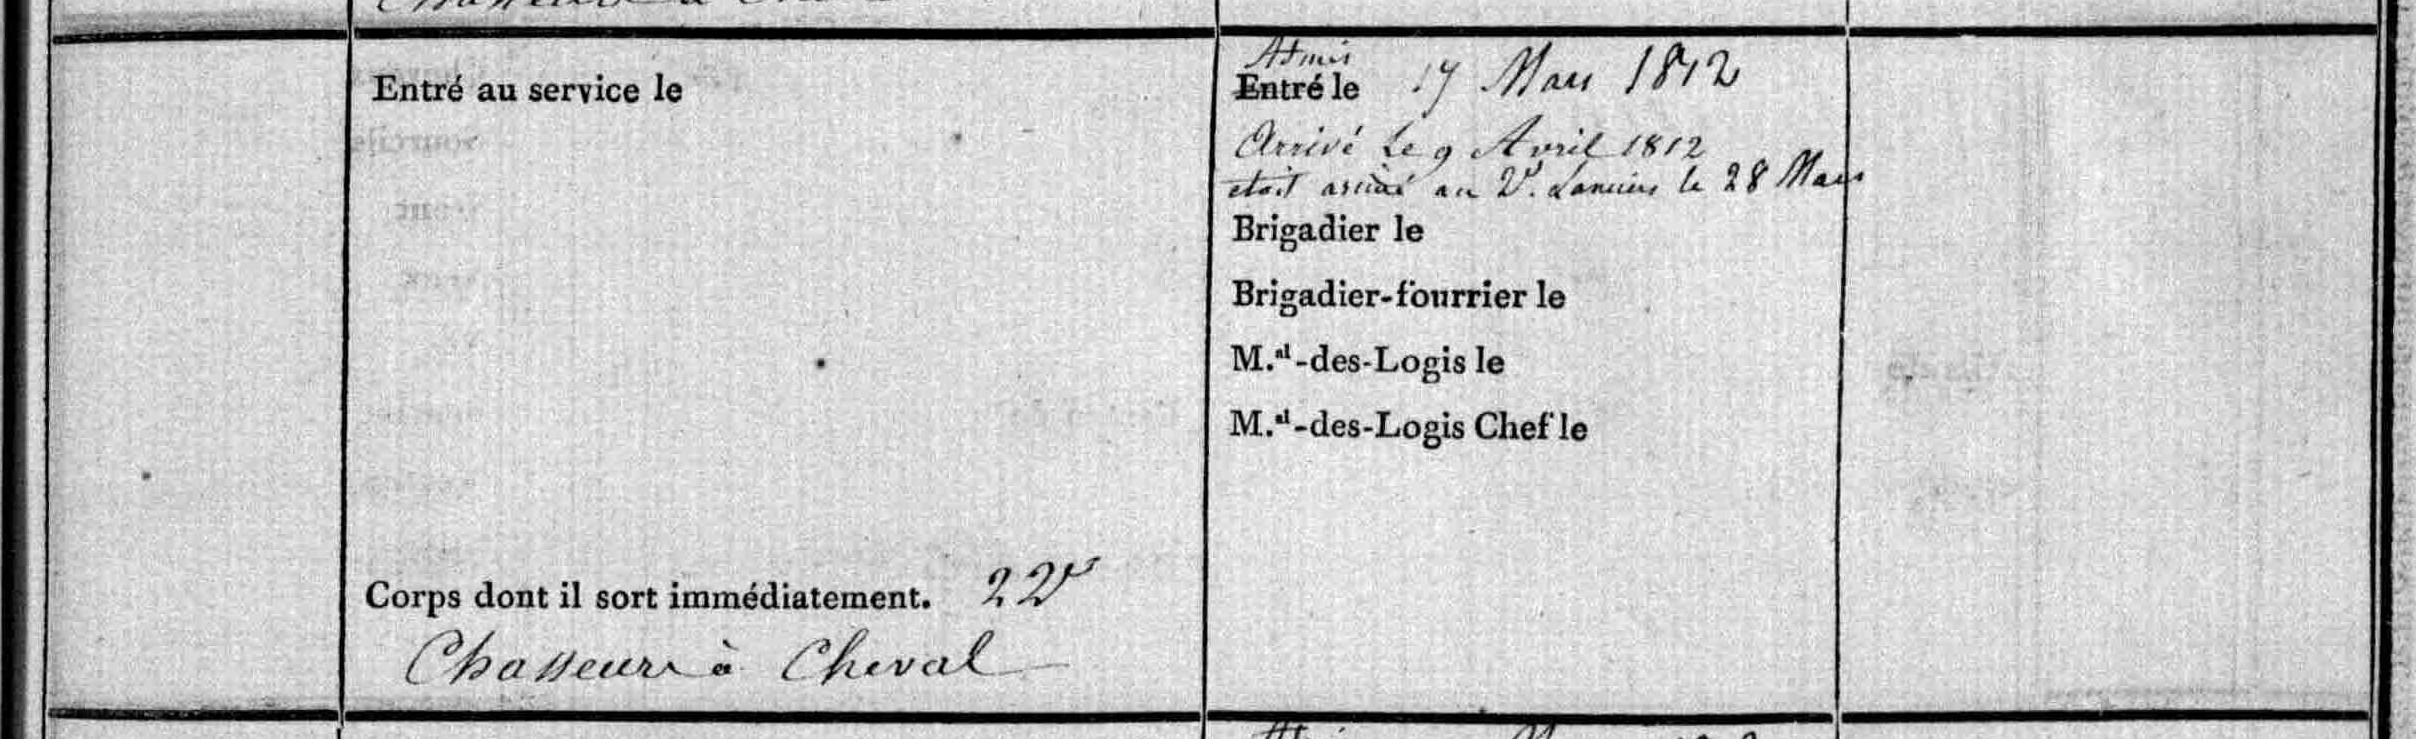 Entré au service le
Corps dont il sort immédiatement. 22e
Chasseurs à Cheval
Admis
Entré le 17 Mars 1812
Arrivé Le 9 Avril 1812
etoit arrivé au 2e. Lanciers le 28 Mars
Brigadier le
Brigadier-fourrier le
M.al-des-Logis le
M.al-des-Logis Chef le